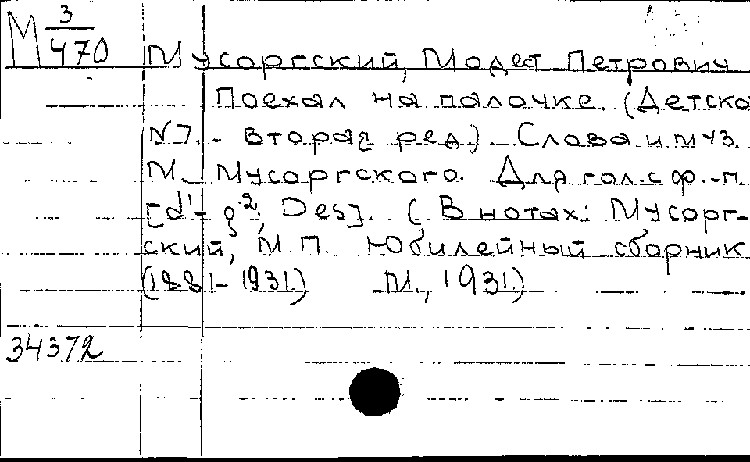 М 3/470
Мусоргский, Модест Петрович
Поехал на палочке. (Детска
№7. - вторая ред). Слова и муз.
М. Мусоргского. Для гол. с ф.-п.
[d¹- g², Des]. (В нотах: Мусорг-
ский, М.П. Юбилейный сборник
(1881-1931) М., 1931.)
34372